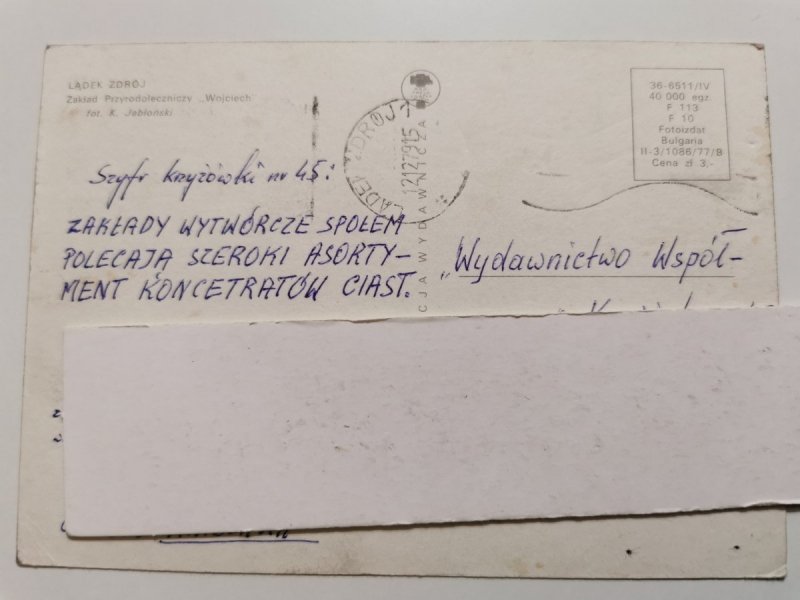 LĄDEK ZDRÓJ
Zakład Przyrodoleczniczy „Wojciech"
fot. K. Jabłoński
36-6511/IV
40 000 egz.
P 113
F 10
Fotoizdat
Bulgaria
II-3/1086/77/B
Cena zł 3,-
LĄDEK ZDRÓJ 1
CJA WYDAWNICZA
Szyfr krzyżówki nr 45:
ZAKŁADY WYTWÓRCZE SPOŁEM
POLECAJĄ SZEROKI ASORTY-
MENT KONCETRATÓW CIAST.
„Wydawnictwo Współ-